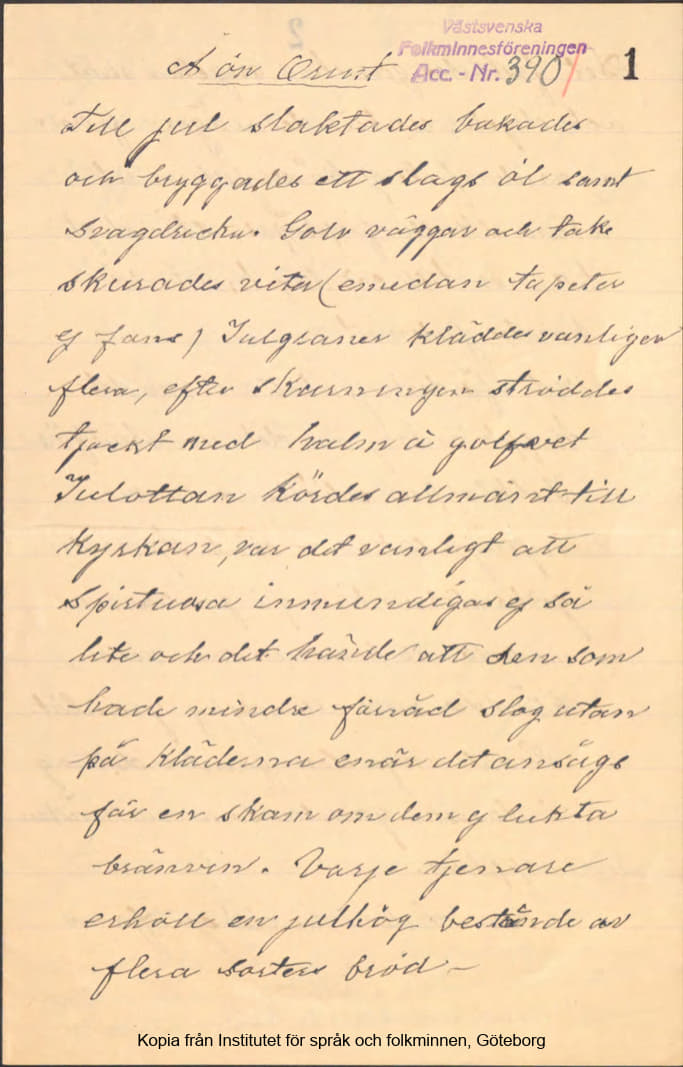 Västsvenska
Folkminnesföreningen
Acc. - Nr. 390
1
Å ön Orust
Till jul slaktades bakades
och bryggades ett slags öl samt
svagdricka. Golv väggar och tak
skurades vita (emedan tapeter
ej fans) Julgranar kläddes vanligen
flera, efter skurningen ströddes
tjockt med halm å golfvet
Julottan kördes allmänt till
kyrkan, var det vanligt att
spirtuosa inmundigas ej så
lite och det hände att den som
hade mindre förråd slog utan
på kläderna enär det ansågs
för en skam om dem ej lukta
bränvin. Varje tjenare
erhöll en julhög bestånde av
flera sorters bröd –
Kopia från Institutet för språk och folkminnen, Göteborg